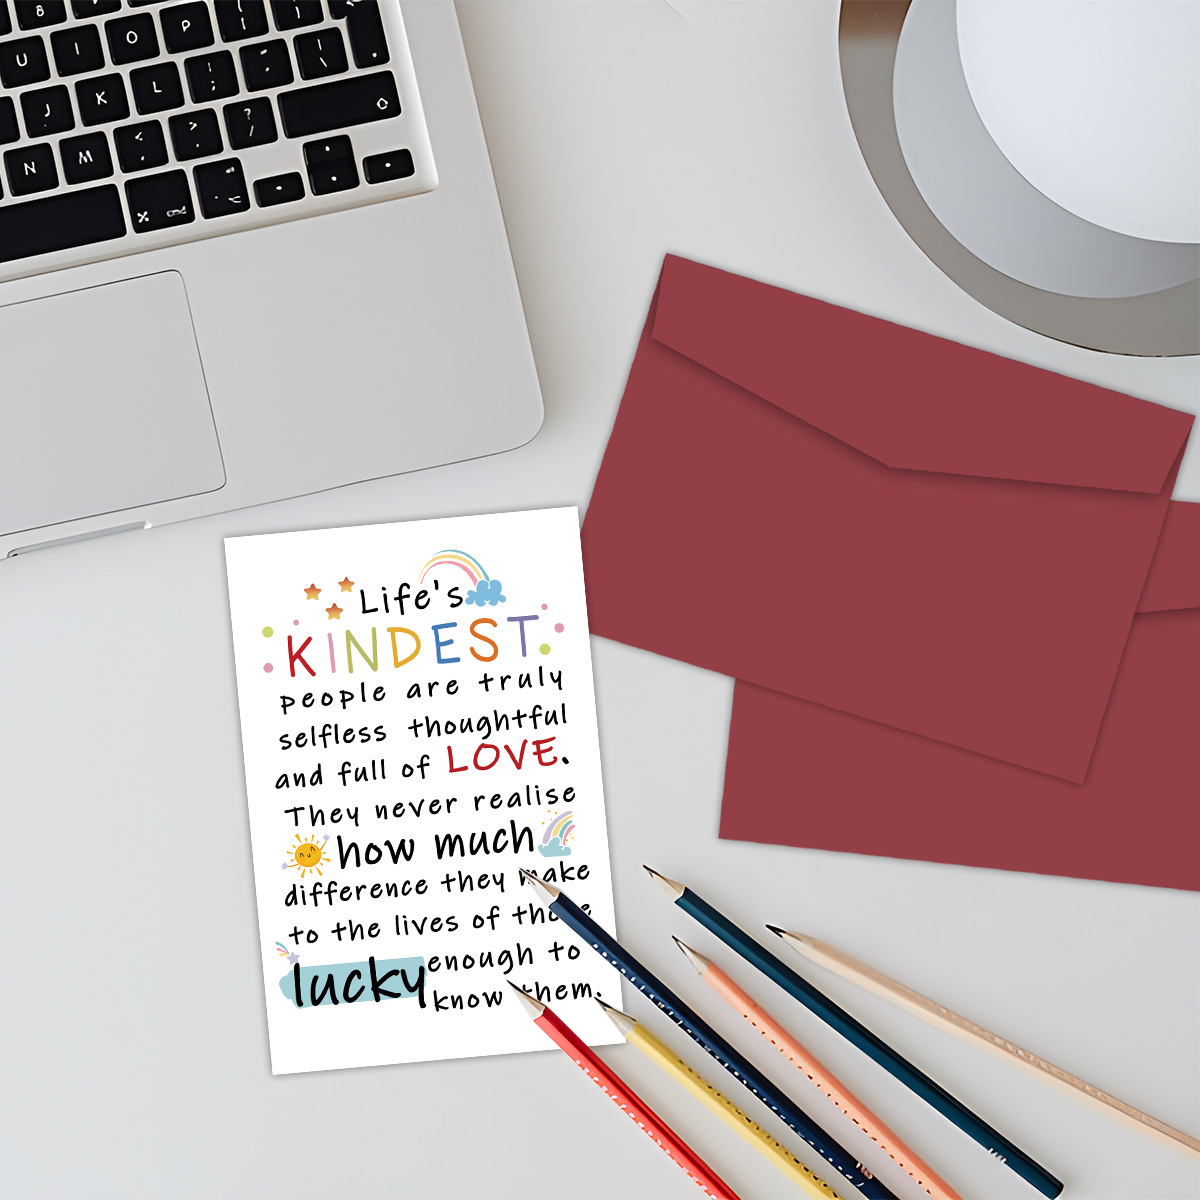 8 9 0
U I O P { [ } ]
J K L : ; " ' | \
N M < , > . ? /
Life's
KINDEST
people are truly
selfless thoughtful
and full of LOVE.
They never realise
how much
difference they make
to the lives of those
lucky enough to
know them.